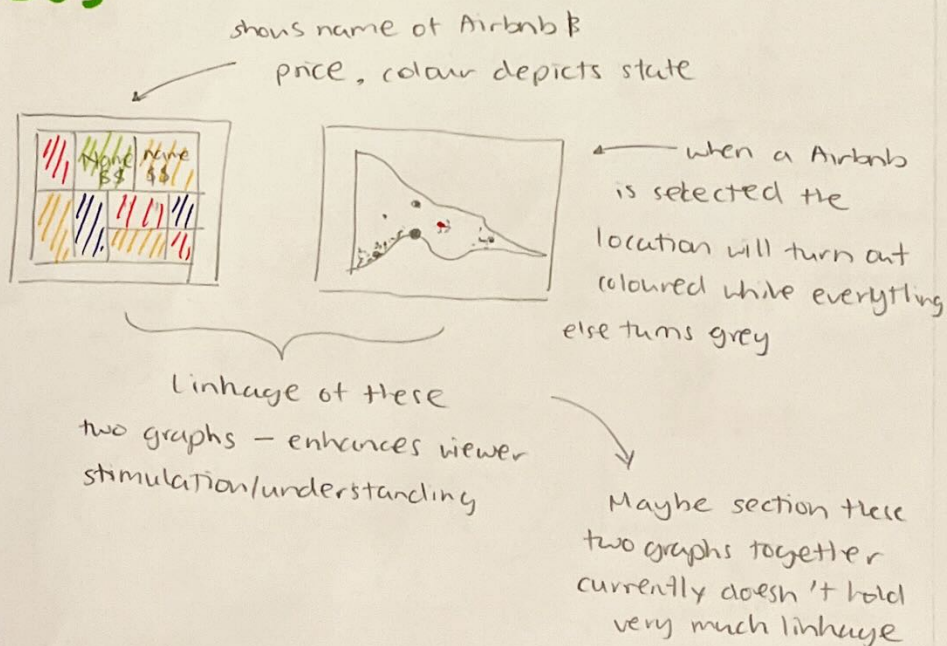 shows name of Airbnb &
price, colour depicts state
Name Name
$$ $$
when a Airbnb
is selected the
location will turn out
coloured while everything
else turns grey
Linkage of these
two graphs – enhances viewer
stimulation/understanding
Maybe section these
two graphs together
currently doesn't hold
very much linkage